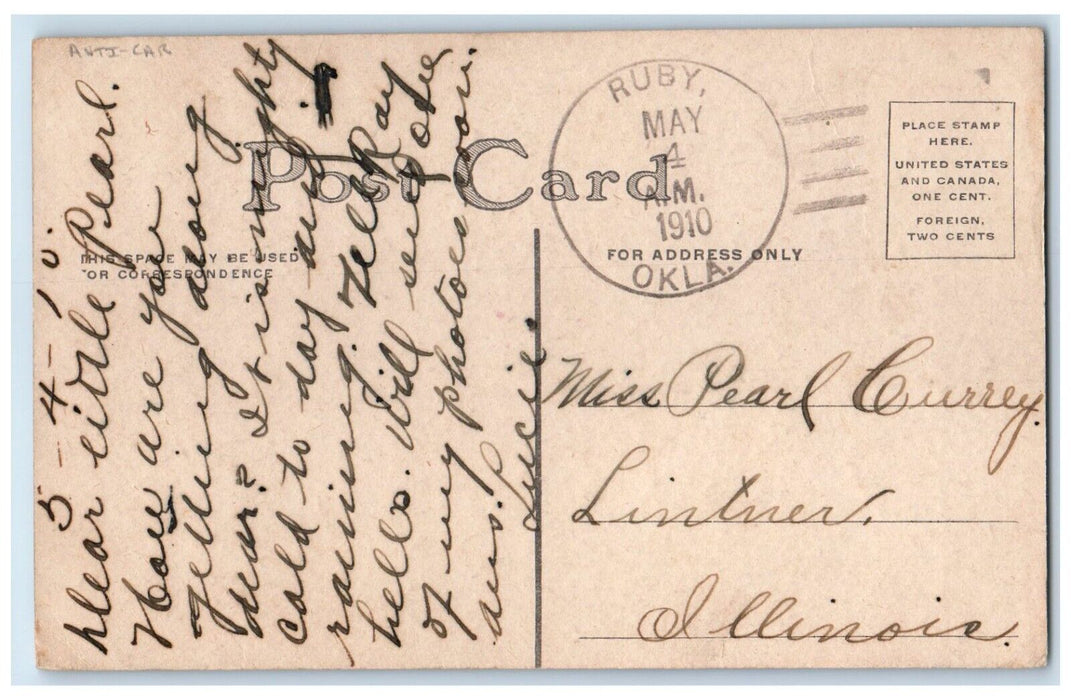 ANTI-CAR
5-4-10.
Dear little Pearl.
How are you
getting along
dear? It is mighty
cold to day and
raining. Tell Ray
hello. Will send you one
of my photoes soon.
ans. Lucil.
Post Card
THIS SPACE MAY BE USED
FOR CORRESPONDENCE
FOR ADDRESS ONLY
RUBY,
MAY
4
A.M.
1910
OKLA.
PLACE STAMP
HERE.
UNITED STATES
AND CANADA,
ONE CENT.
FOREIGN,
TWO CENTS
Miss Pearl Currey.
Lintner.
Illinois.